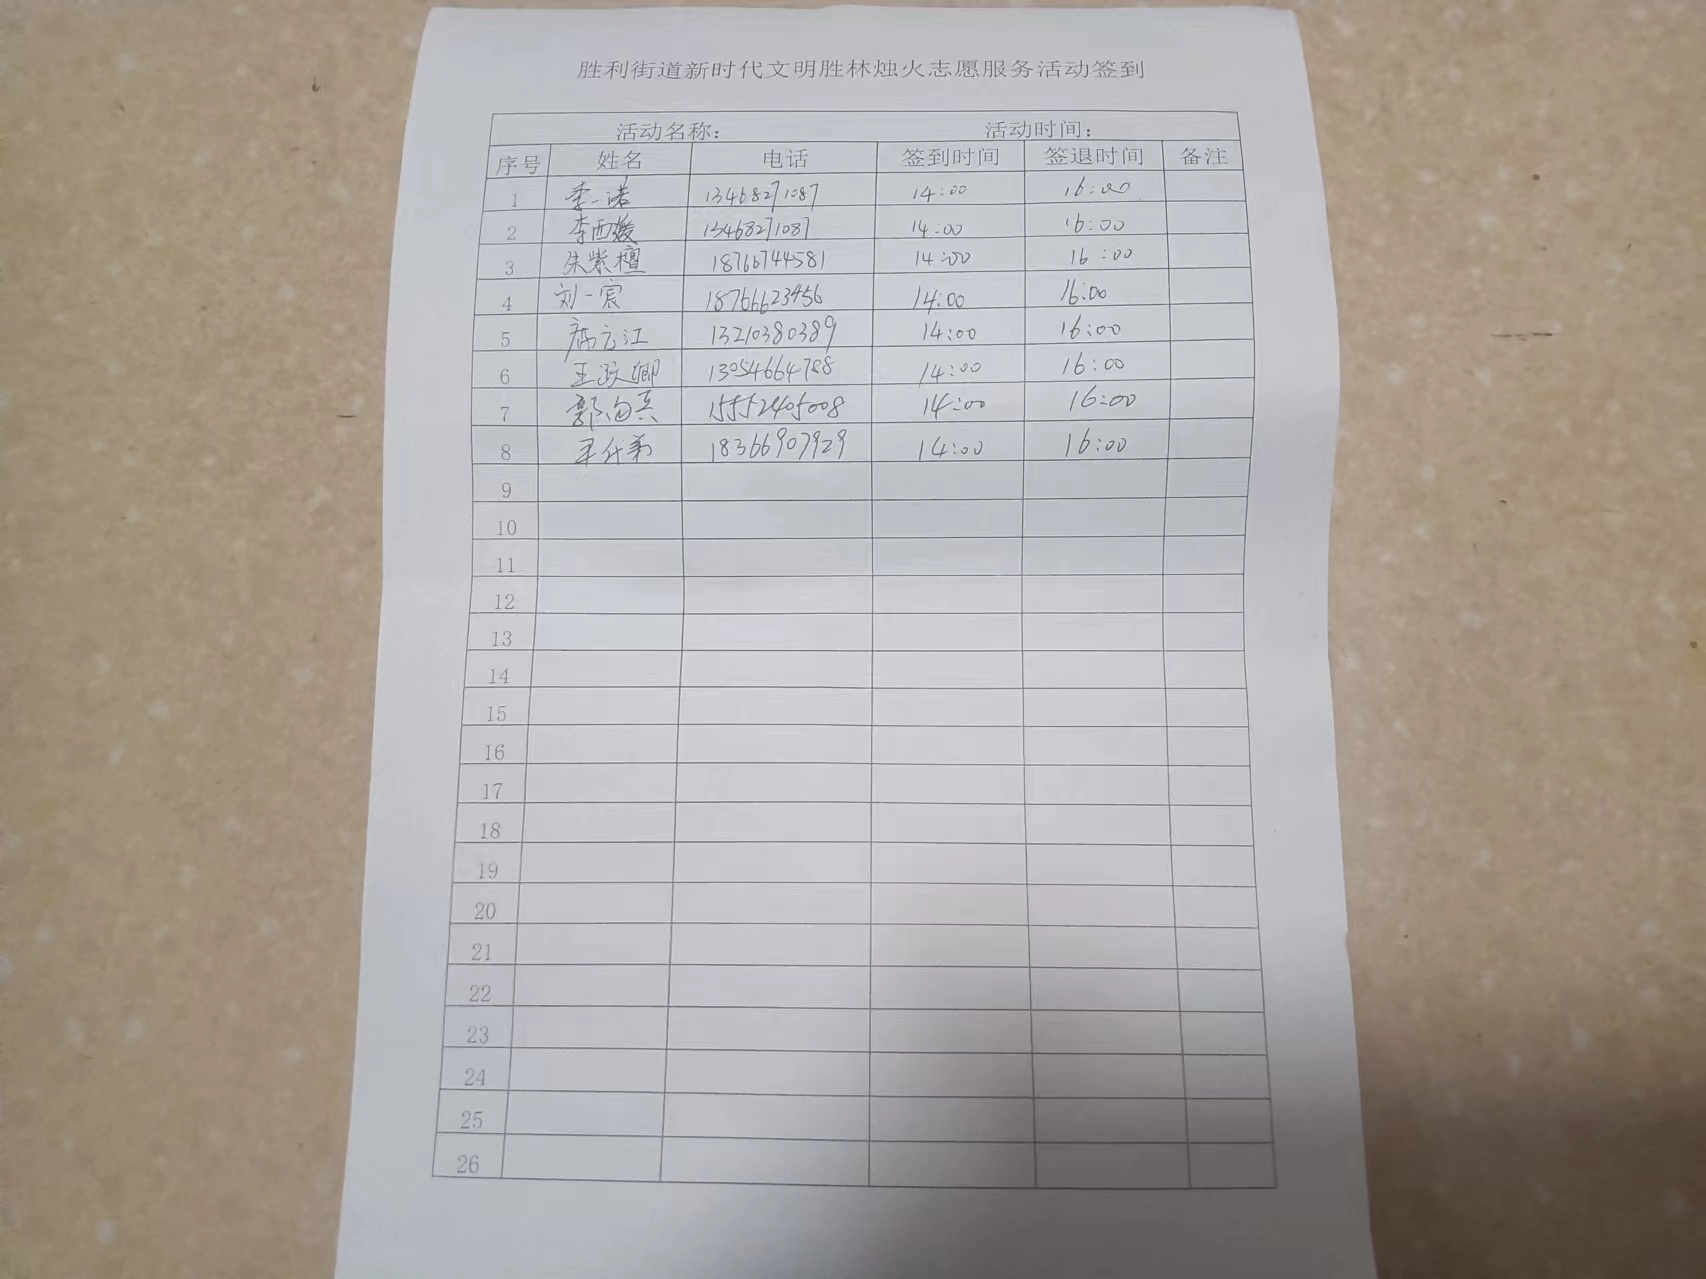 胜利街道新时代文明胜林烛火志愿服务活动签到
活动名称： 活动时间：
序号 姓名 电话 签到时间 签退时间 备注
1 李一诺 13468271087 14:00 16:00
2 李西媛 13468271087 14:00 16:00
3 朱紫檀 18766744581 14:00 16:00
4 刘一宸 18766623456 14:00 16:00
5 13210380389 14:00 16:00
6 王政卿 13054664788 14:00 16:00
7 15552405008 14:00 16:00
8 18366907929 14:00 16:00
9
10
11
12
13
14
15
16
17
18
19
20
21
22
23
24
25
26